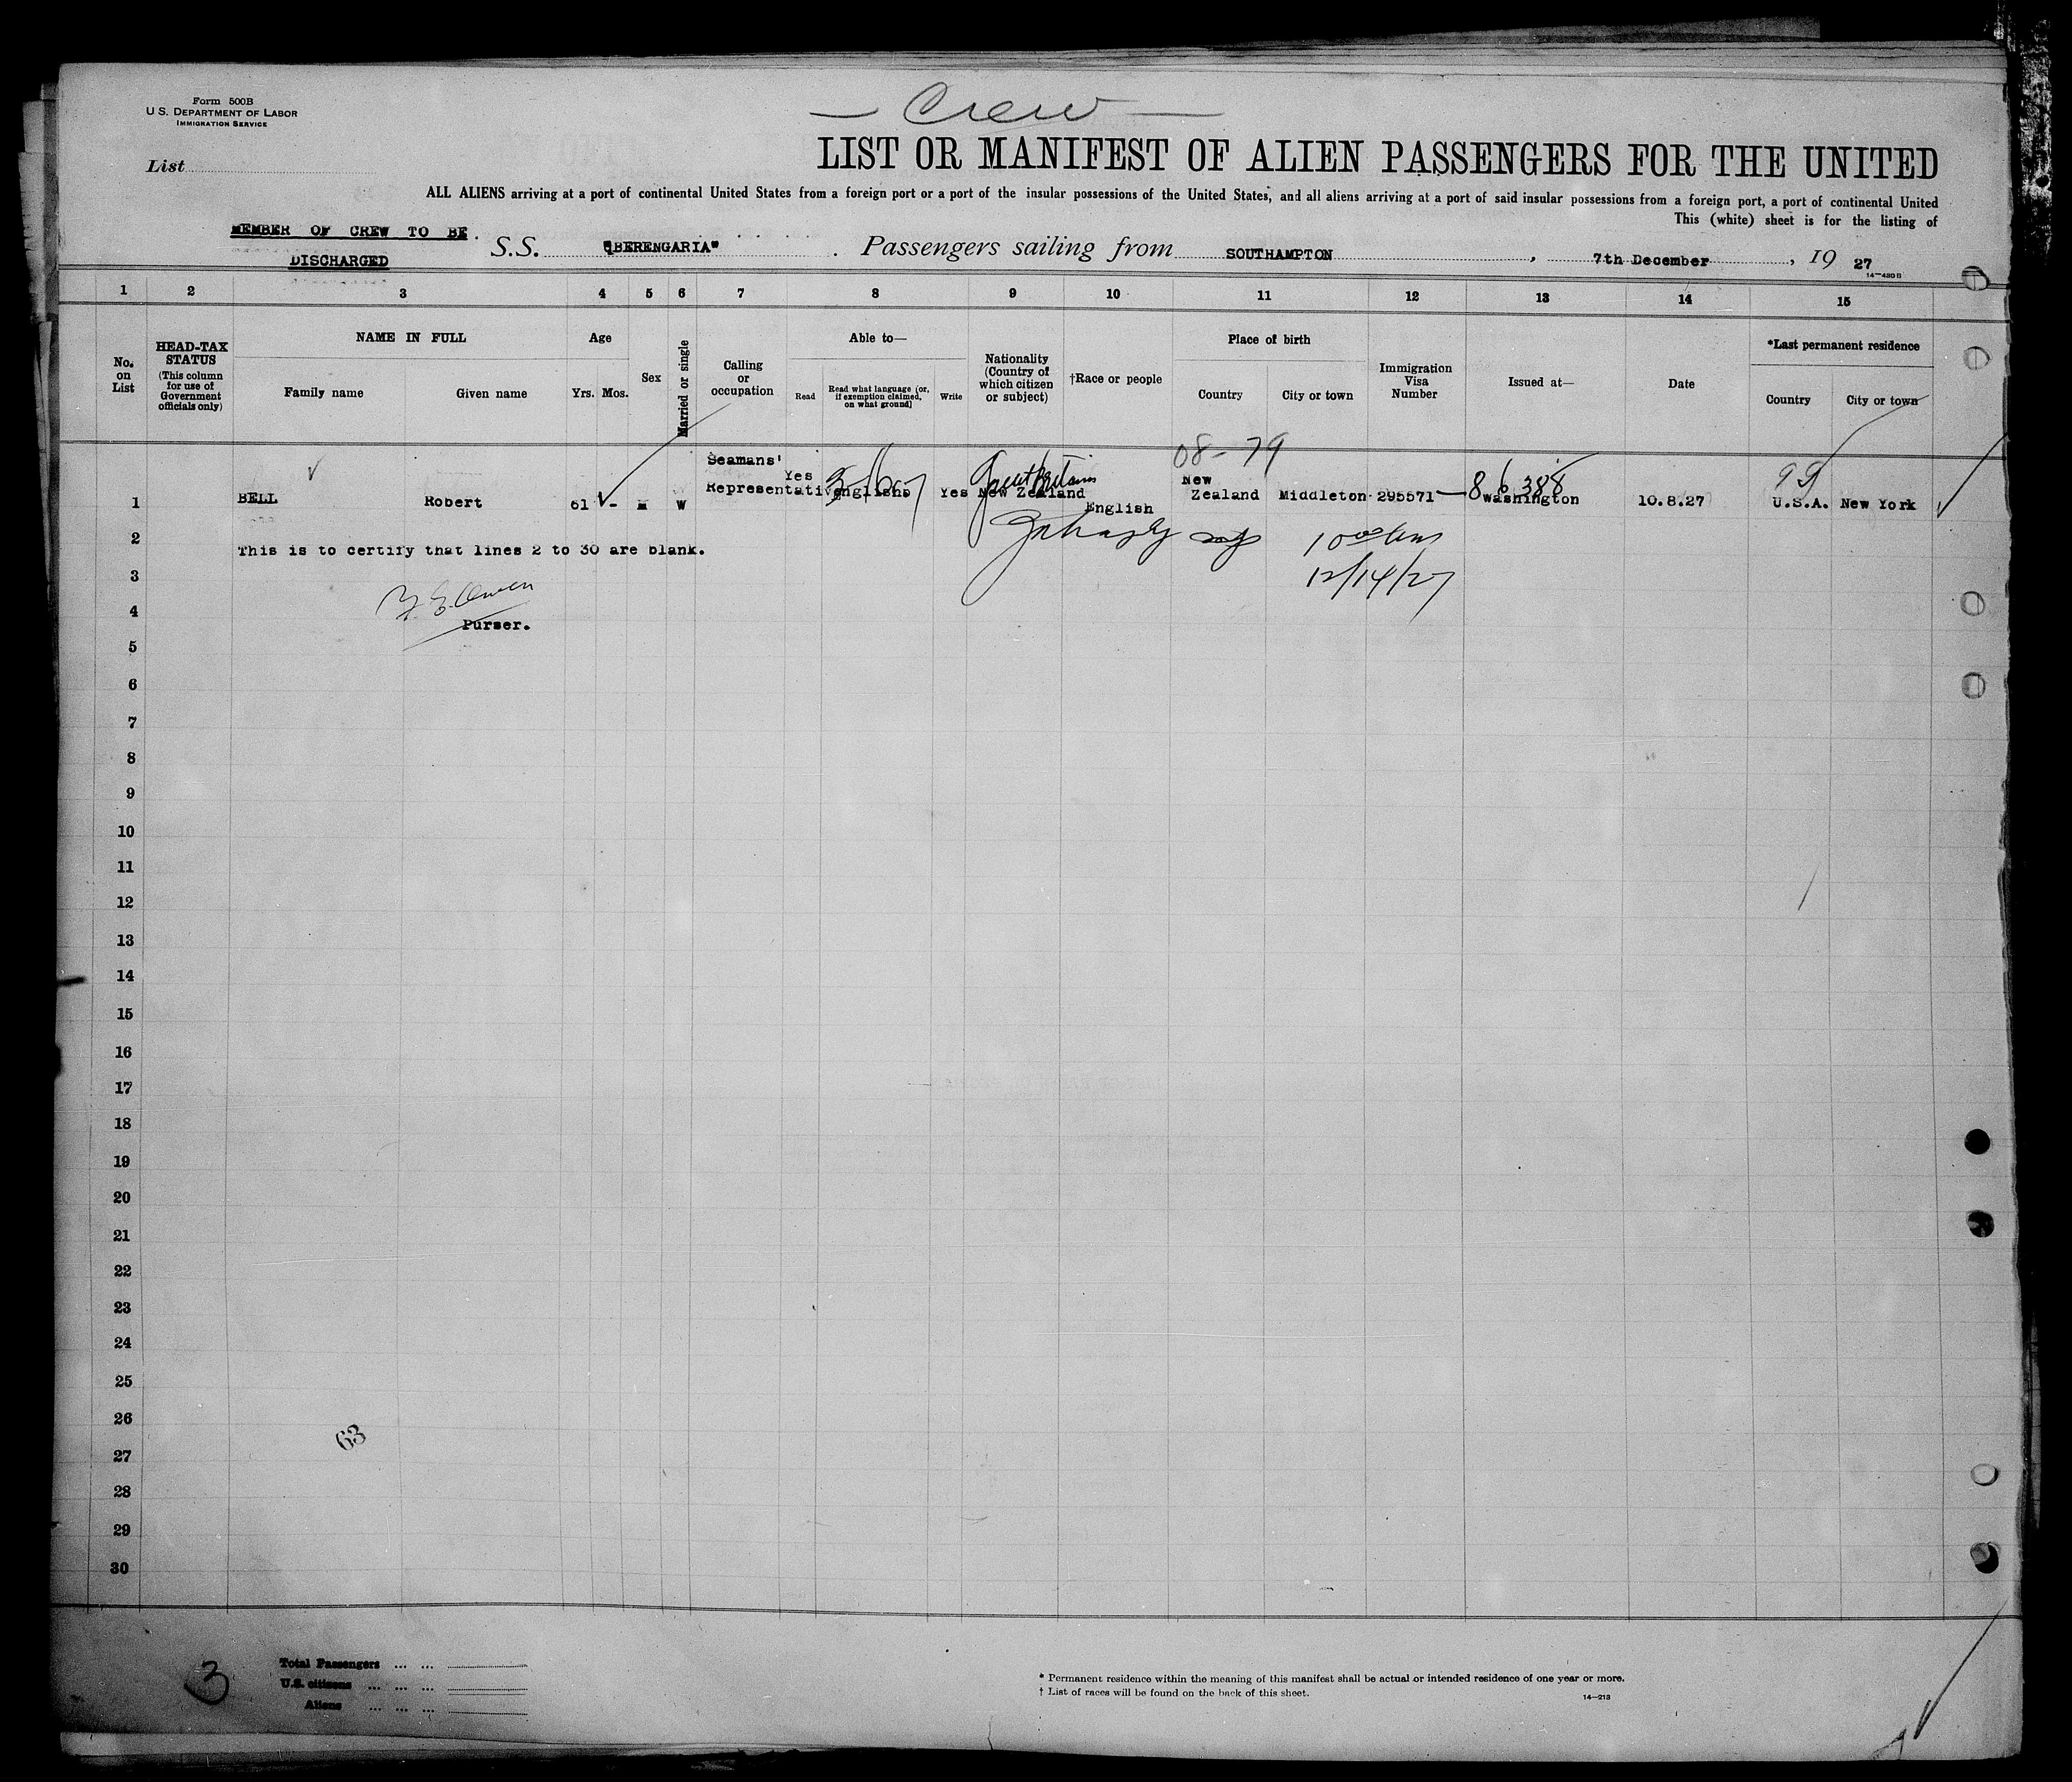 Crew
Form 500B
U. S. DEPARTMENT OF LABOR
IMMIGRATION SERVICE
List
LIST OR MANIFEST OF ALIEN PASSENGERS FOR THE UNITED
ALL ALIENS arriving at a port of continental United States from a foreign port or a port of the insular possessions of the United States, and all aliens arriving at a port of said insular possessions from a foreign port, a port of continental United
This (white) sheet is for the listing of
MEMBER OF CREW TO BE
DISCHARGED
S.S. "BERENGARIA" Passengers sailing from SOUTHAMPTON, 7th December, 19 27
14—480 B
1 2 3 4 5 6 7 8 9 10 11 12 13 14 15
No. on List
HEAD-TAX STATUS
(This column for use of Government officials only)
NAME IN FULL
Family name Given name
Age
Yrs. Mos.
Sex
Married or single
Calling or occupation
Able to—
Read
Read what language [or, if exemption claimed, on what ground]
Write
Nationality (Country of which citizen or subject)
†Race or people
Place of birth
Country City or town
Immigration Visa Number
Issued at—
Date
*Last permanent residence
Country City or town
08-79
Great Britain
86388
99
1 BELL Robert 61 - M W Seamans' Representative Yes English Yes New Zealand English New Zealand Middleton 295571 Washington 10.8.27 U.S.A. New York
2 This is to certify that lines 2 to 30 are blank.
12/14/27
3
4
Purser.
5
6
7
8
9
10
11
12
13
14
15
16
17
18
19
20
21
22
23
24
25
26
63
27
28
29
30
3
Total Passengers ... ...
U.S. citizens ... ... ...
Aliens ... ... ...
* Permanent residence within the meaning of this manifest shall be actual or intended residence of one year or more.
† List of races will be found on the back of this sheet.
14—213